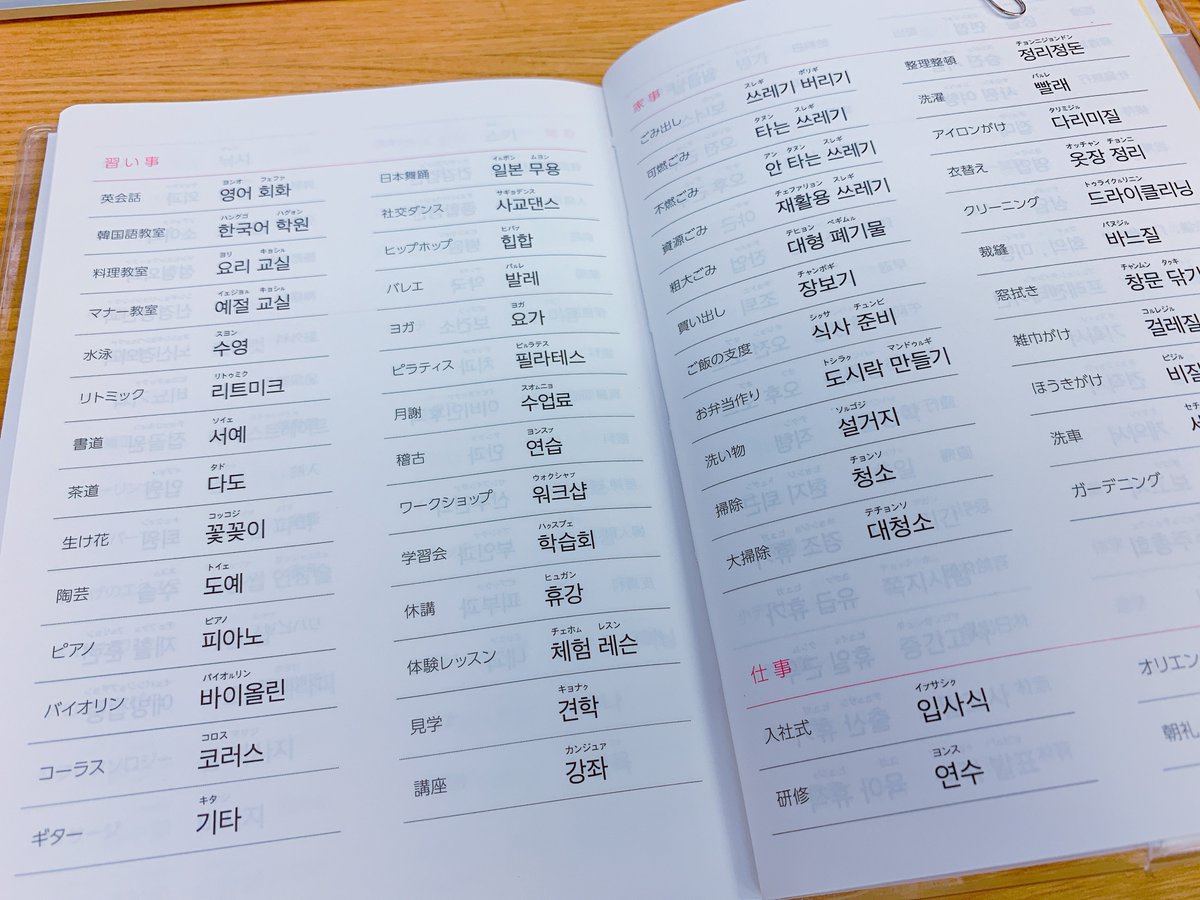 習い事
英会話 영어 회화 ヨンオ フェファ
韓国語教室 한국어 학원 ハングゴ ハグォン
料理教室 요리 교실 ヨリ キョシル
マナー教室 예절 교실 イェジョル キョシル
水泳 수영 スヨン
リトミック 리트미크 リトゥミク
書道 서예 ソイェ
茶道 다도 タド
生け花 꽃꽂이 コッコジ
陶芸 도예 トイェ
ピアノ 피아노 ピアノ
バイオリン 바이올린 バイオルリン
コーラス 코러스 コロス
ギター 기타 キタ
日本舞踊 일본 무용 イルボン ムヨン
社交ダンス 사교댄스 サギョデンス
ヒップホップ 힙합 ヒパプ
バレエ 발레 パルレ
ヨガ 요가 ヨガ
ピラティス 필라테스 ピルラテス
月謝 수업료 スオムニョ
稽古 연습 ヨンスプ
ワークショップ 워크샵 ウォクシャプ
学習会 학습회 ハクスプェ
休講 휴강 ヒュガン
体験レッスン 체험 레슨 チェホム レスン
見学 견학 キョナク
講座 강좌 カンジュア
家事
ごみ出し 쓰레기 버리기 スレギ ボリギ
可燃ごみ 타는 쓰레기 タヌン スレギ
不燃ごみ 안 타는 쓰레기 アン タヌン スレギ
資源ごみ 재활용 쓰레기 チェファリョン スレギ
粗大ごみ 대형 폐기물 テヒョン ペギムル
買い出し 장보기 チャンボギ
ご飯の支度 식사 준비 シクサ チュンビ
お弁当作り 도시락 만들기 トシラク マンドゥルギ
洗い物 설거지 ソルゴジ
掃除 청소 チョンソ
大掃除 대청소 テチョンソ
整理整頓 정리정돈 チョンニジョンドン
洗濯 빨래 パルレ
アイロンがけ 다리미질 タリミジル
衣替え 옷장 정리 オッチャン チョンニ
クリーニング 드라이클리닝 トゥライクルリニン
裁縫 바느질 パヌジル
窓拭き 창문 닦기 チャンムン タクキ
雑巾がけ 걸레질 コルレジル
ほうきがけ 비질 ピジル
洗車
ガーデニング
仕事
入社式 입사식 イプサシク
研修 연수 ヨンス
オリエン
朝礼